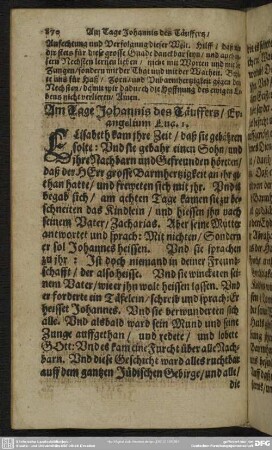 870 Am Tage Johannis des Täuffers/
Anfechtung und Verfolgung dieser Welt. Hilff/ daß
dir stets für diese grosse Gnade danckbar seyn/ und auch
Nechsten lernen lieben/ nicht mit Worten und
Zungen/ sondern mit der That und mit der Warheit.
uns für Haß/ Zorn/ und Unbarmhertzigkeit gegen
Nechsten/ damit wir dadurch die Hoffnung des ewigen
bens nicht verlieren/ Amen.
Am Tage Johannis des Täuffers/ Ev
angelium Luc. 1.
ELisabeth kam ihre Zeit/ daß sie gebähren
solte: Vnd sie gebahr einen Sohn/ und
ihre Nachbarn und Gefreunden höreten/
daß der HErr grosse Barmhertzigkeit an ihr ge
than hatte/ und freweten sich mit ihr. Vnd
begab sich/ am achten Tage kamen sie zu be-
schneiten das Kindlein/ und hiessen ihn nach
seinem Vater/ Zacharias. Aber seine Mutter
antwortet und sprach: Mit nichten/ Sondern
er sol Johannes heissen. Vnd sie sprachen
zu ihr: Ist doch niemand in deiner Freund-
schafft/ der also heisse. Vnd sie wincketen sei-
nem Vater/ wie er ihn wolt heissen lassen. Vnd
er forderte ein Täfelein/ schreib und sprach: Er
heisset Johannes. Vnd sie verwunderten sich
alle. Vnd alsbald ward sein Mund und seine
Zunge auffgethan/ und redete/ und lobete
GOtt: Vnd es kam eine Furcht über alle Nach-
barn. Vnd diese Geschicht ward alles ruchtbar
auff dem gantzen Jüdischen Gebirge/ und alle/
die